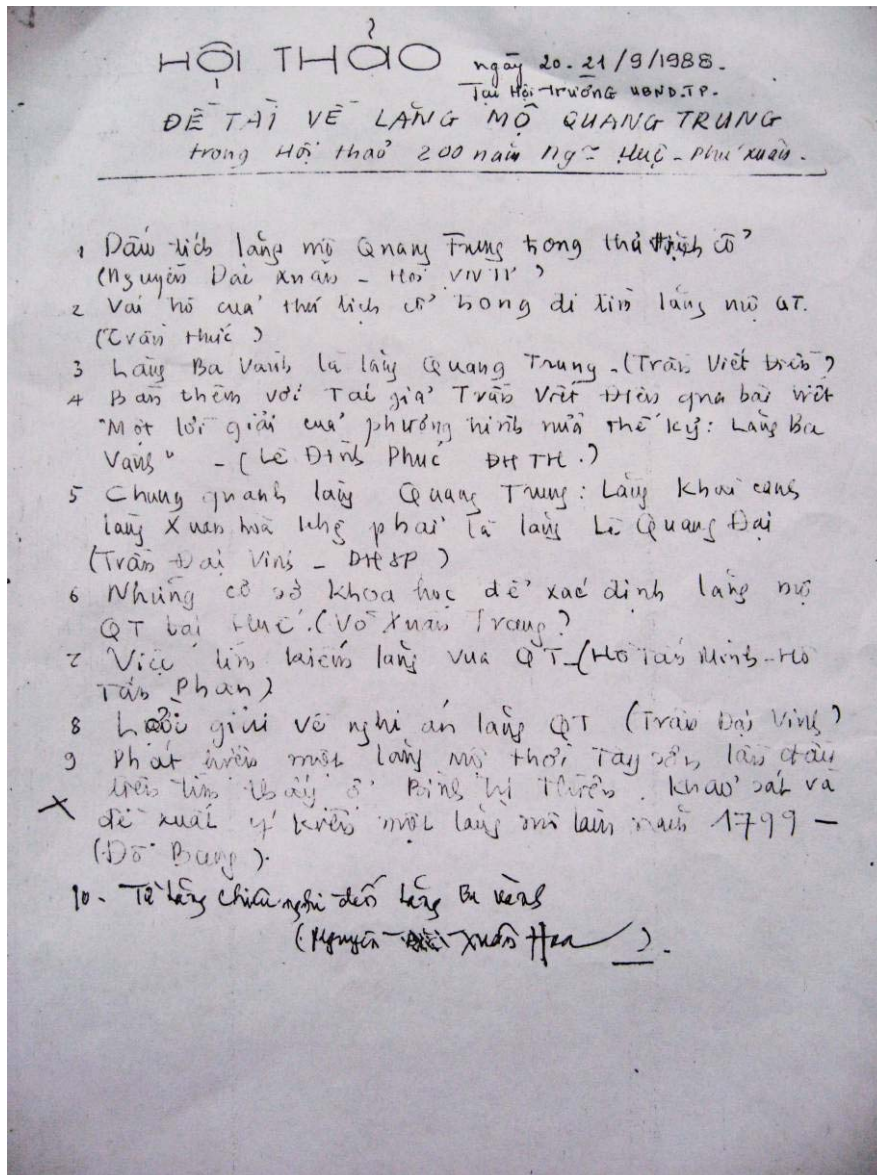 HỘI THẢO ngày 20.21/9/1988.
Tại Hội trường UBND.TP.
ĐỀ TÀI VỀ LĂNG MỘ QUANG TRUNG
trong Hội thảo 200 năm Ngʷ Huệ - Phú Xuân.
1 Dấu tích lăng mộ Quang Trung trong thư tịch cổ
(Nguyễn Đắc Xuân - Hội VNTT)
2 Vai trò của thư tịch cổ trong đi tìm lăng mộ QT.
(Trần Thức)
3 Lăng Ba Vành là lăng Quang Trung - (Trần Viết Điền)
4 Bàn thêm với Tác giả Trần Viết Điền qua bài viết
"Một lời giải của phương trình nửa thế kỷ: Lăng Ba
Vành" - (Lê Đình Phúc ĐHTH.)
5 Chung quanh lăng Quang Trung: Lăng Khai canh
làng Xuân hoà khg phải là lăng Lê Quang Đại
(Trần Đại Vinh - ĐHSP)
6 Những cơ sở khoa học để xác định lăng mộ
QT tại Huế. (Võ Xuân Trang)
7 Việc tìm kiếm lăng vua QT - (Hồ Tấn Minh - Hồ
Tấn Phan)
8 giải về nghi án lăng QT (Trần Đại Vinh)
9 Phát hiện một lăng mộ thời Tây Sơn lần đầu
tiên tìm thấy ở Bình Trị Thiên. Khảo sát và
X đề xuất ý kiến một lăng mộ làm năm 1799 -
(Đỗ Bang).
10 - Từ lăng Chiêu nghi đến lăng Ba Vành
(Nguyễn Xuân Hoa).